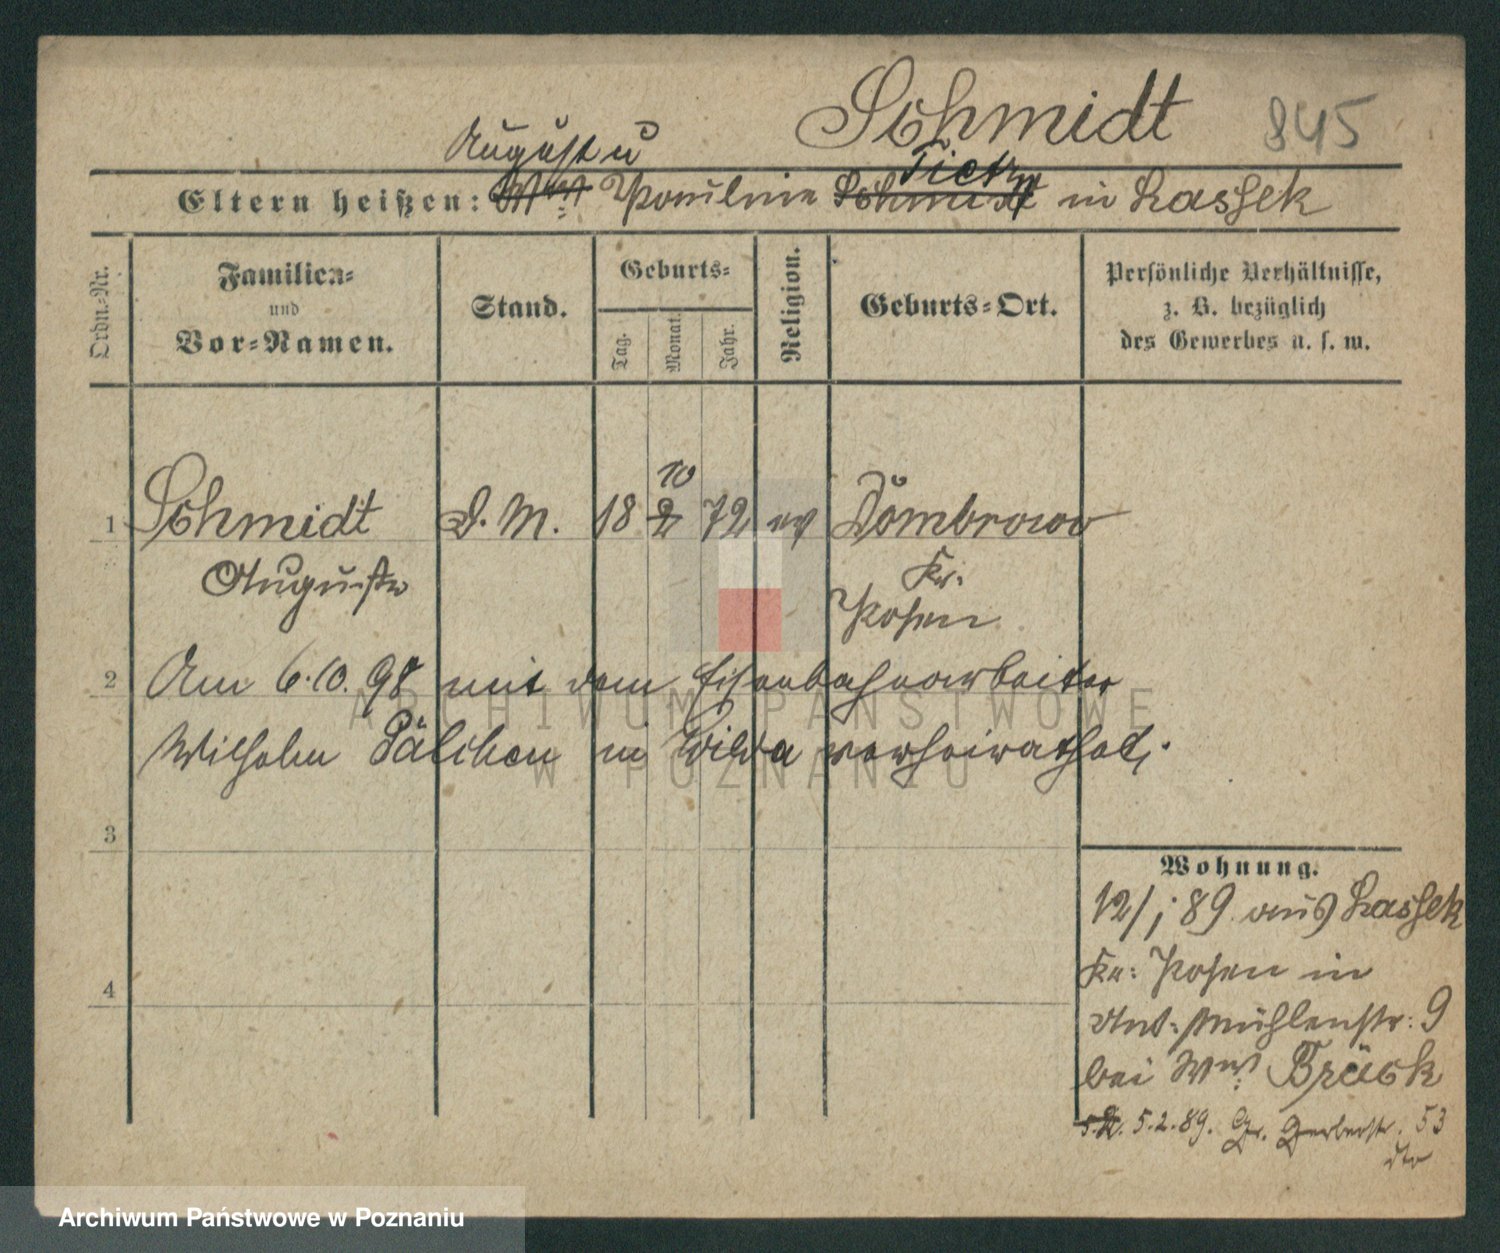 Schmidt 845
August u
Eltern heißen: Wwe Pauline Schmidt Tietz in Lassek
Ordn.-Nr.
Familien-
und
Vor-Namen.
Stand.
Geburts-
Tag.
Monat.
Jahr.
Religion.
Geburts-Ort.
Persönliche Verhältnisse,
z. B. bezüglich
des Gewerbes u. s. w.
10
1 Schmidt D. M. 18 2 72 ev Dombrowo
Auguste Kr.
Posen
2 Am 6.10.98 mit dem Eisenbahnarbeiter
Wilhelm in Wilda verheirathet.
3
4
Wohnung.
12/1 89 aus Lassek
Kr: Posen in
Mühlenstr: 9
bei Wwe Brück
5.2. 5.2.89. Gr. Gerberstr. 53
dto
ARCHIWUM PAŃSTWOWE
W POZNANIU
Archiwum Państwowe w Poznaniu